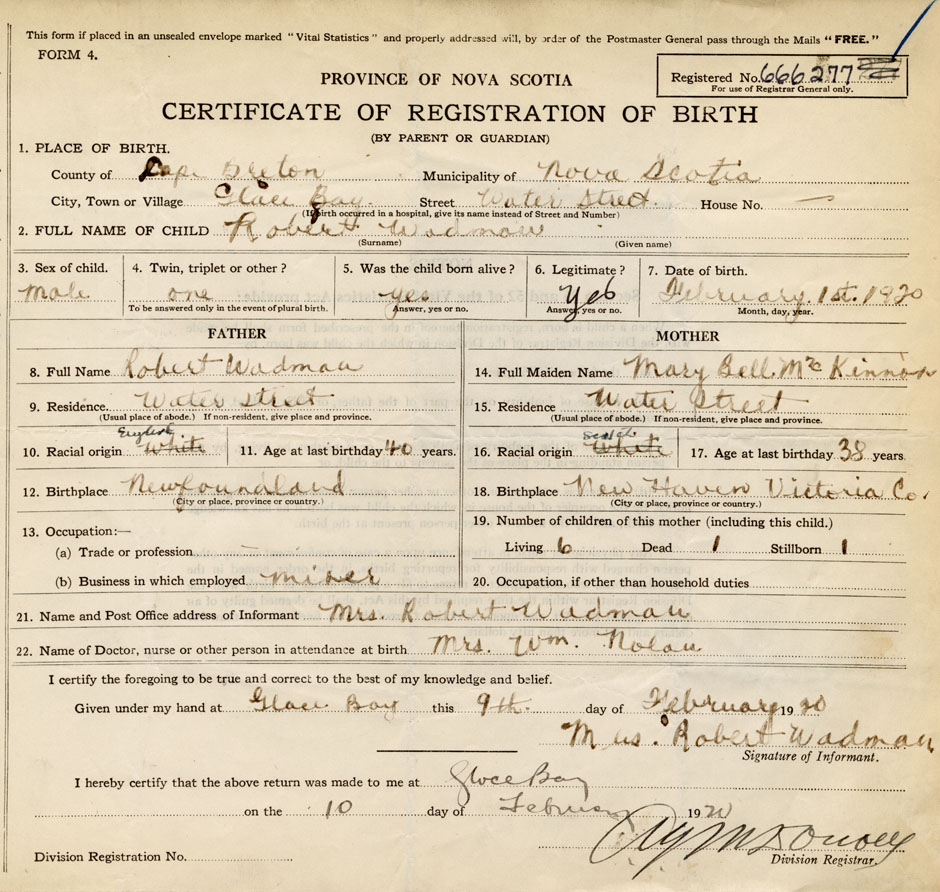 This form if placed in an unsealed envelope marked "Vital Statistics" and properly addressed will, by order of the Postmaster General pass through the Mails "FREE."
FORM 4.
PROVINCE OF NOVA SCOTIA
Registered No. 666277
For use of Registrar General only.
CERTIFICATE OF REGISTRATION OF BIRTH
(BY PARENT OR GUARDIAN)
1. PLACE OF BIRTH.
County of Cape Breton Municipality of Nova Scotia
City, Town or Village Glace Bay. Street Water Street. House No. —
(If birth occurred in a hospital, give its name instead of Street and Number)
2. FULL NAME OF CHILD Robert Wadman
(Surname) (Given name)
3. Sex of child. 4. Twin, triplet or other? 5. Was the child born alive? 6. Legitimate? 7. Date of birth.
Male one yes Yes February. 1st. 1920
To be answered only in the event of plural birth. Answer, yes or no. Answer, yes or no. Month, day, year.
FATHER MOTHER
8. Full Name Robert Wadman 14. Full Maiden Name Mary Bell Mc Kinnon
9. Residence. Water Street 15. Residence Water Street
(Usual place of abode.) If non-resident, give place and province. (Usual place of abode.) If non-resident, give place and province.
English Scotch
10. Racial origin White 11. Age at last birthday 40 years. 16. Racial origin White 17. Age at last birthday 38 years.
12. Birthplace Newfoundland 18. Birthplace New Haven Victoria Co.
(City or place, province or country.) (City or place, province or country.)
13. Occupation:— 19. Number of children of this mother (including this child.)
(a) Trade or profession — Living 6 Dead 1 Stillborn 1
(b) Business in which employed miner 20. Occupation, if other than household duties
21. Name and Post Office address of Informant Mrs. Robert Wadman
22. Name of Doctor, nurse or other person in attendance at birth Mrs. Wm. Nolan
I certify the foregoing to be true and correct to the best of my knowledge and belief.
Given under my hand at Glace Bay this 9th. day of February 1920
Mrs. Robert Wadman
Signature of Informant.
I hereby certify that the above return was made to me at Glace Bay
on the 10 day of February 1920
Division Registration No. Division Registrar.